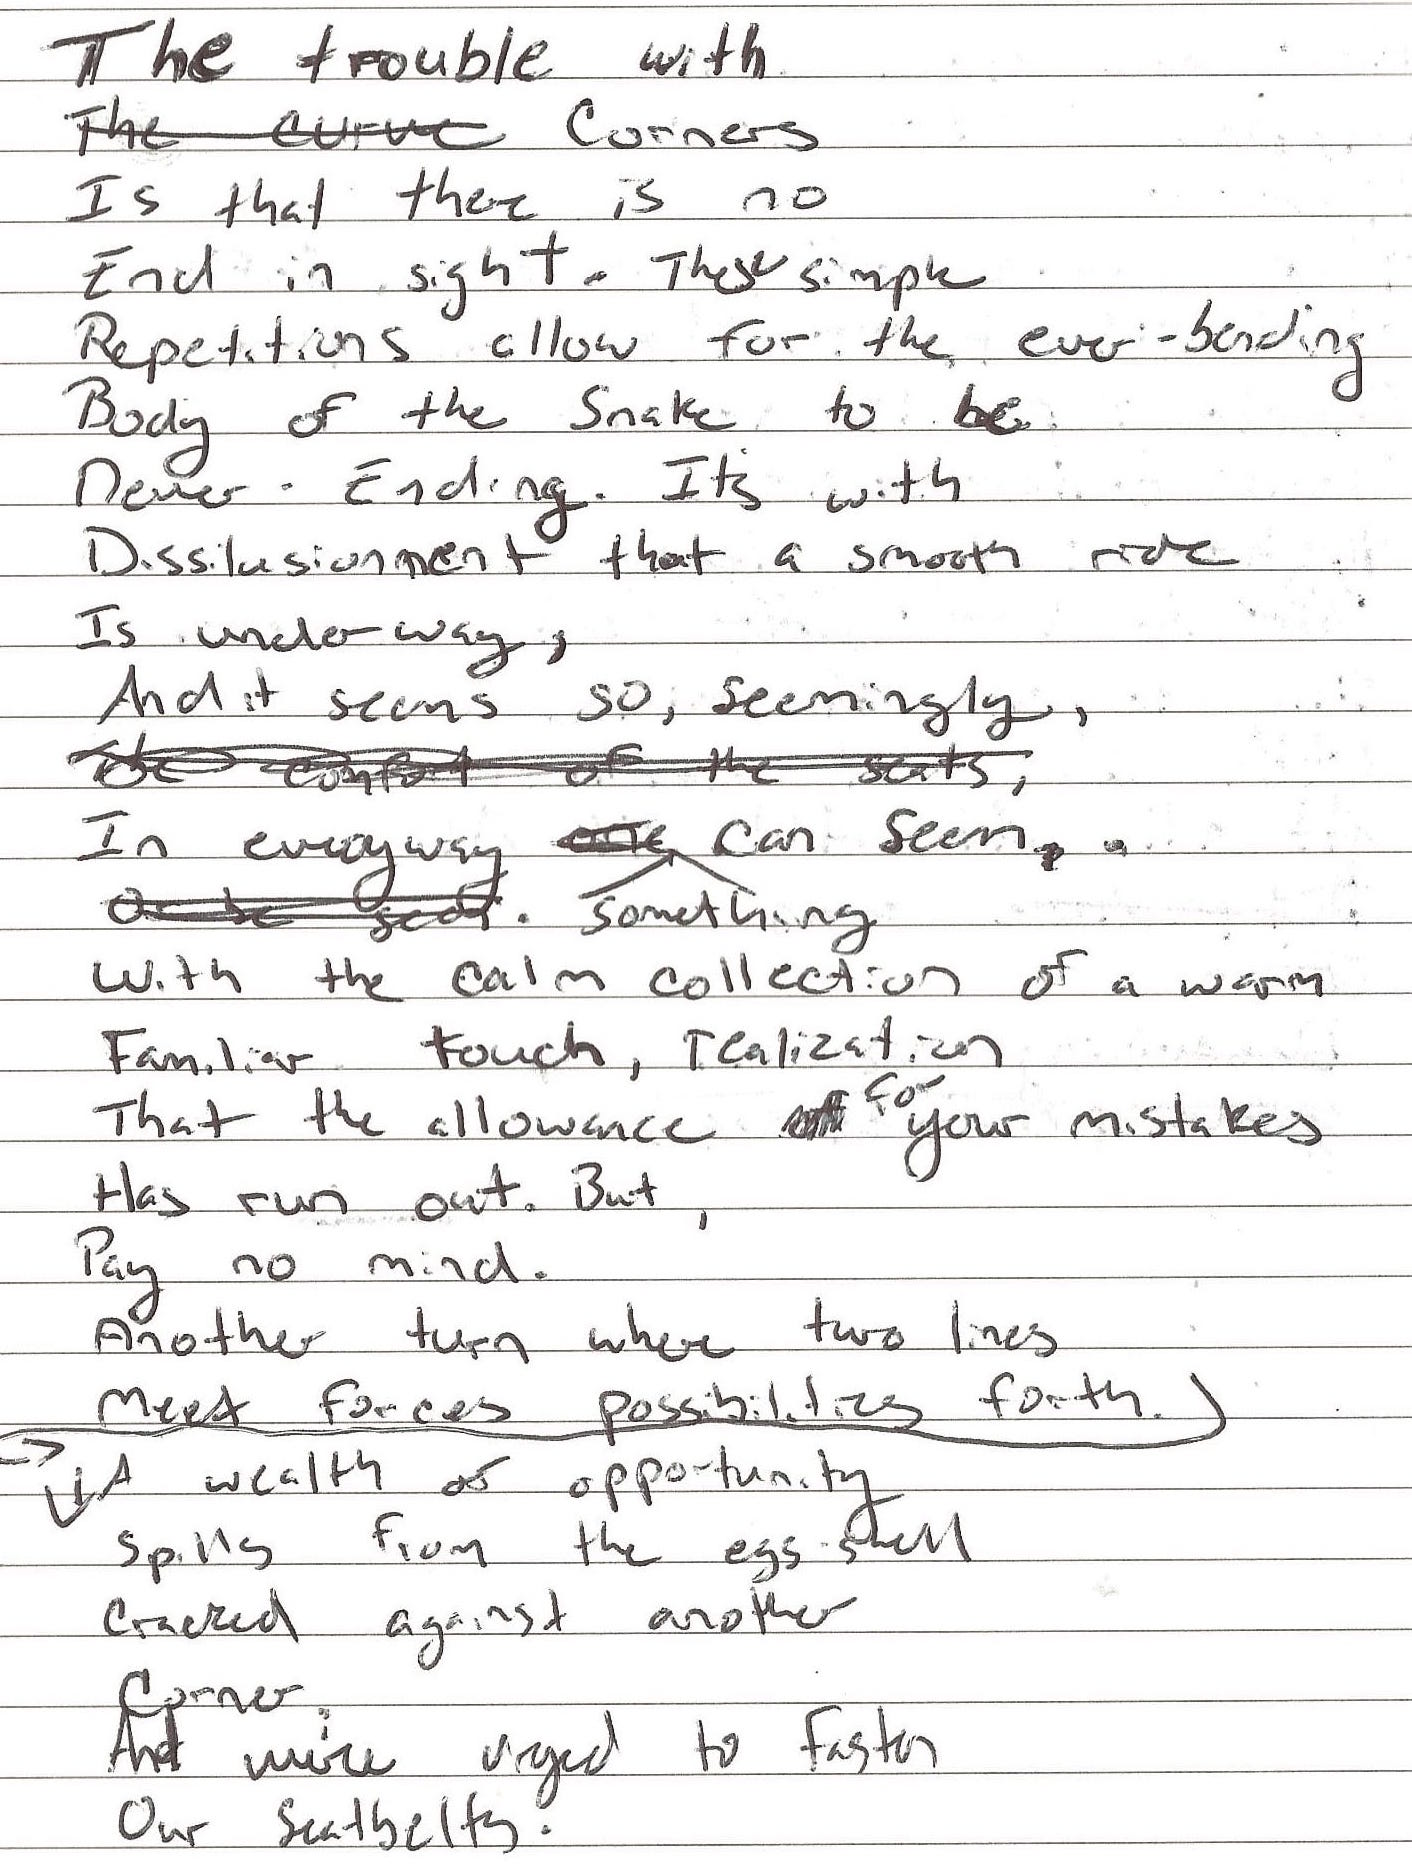 The trouble with
The curve Corners
Is that there is no
End in sight. These simple
Repetitions allow for the ever-bending
Body of the Snake to be
Never-Ending. It's with
Dissilusionment that a smooth ride
Is underway,
And it seems so, seemingly,
The comfort of the seats,
In everyway one can seem.
Or be . something
With the calm collection of a warm
Familiar touch, realization
That the allowance for your mistakes
Has run out. But,
Pay no mind.
Another turn where two lines
Meet forces possibilities forth.
A wealth of opportunity
Spills from the egg-shell
Cracked against another
Corner.
And we're urged to fasten
Our Seatbelts.